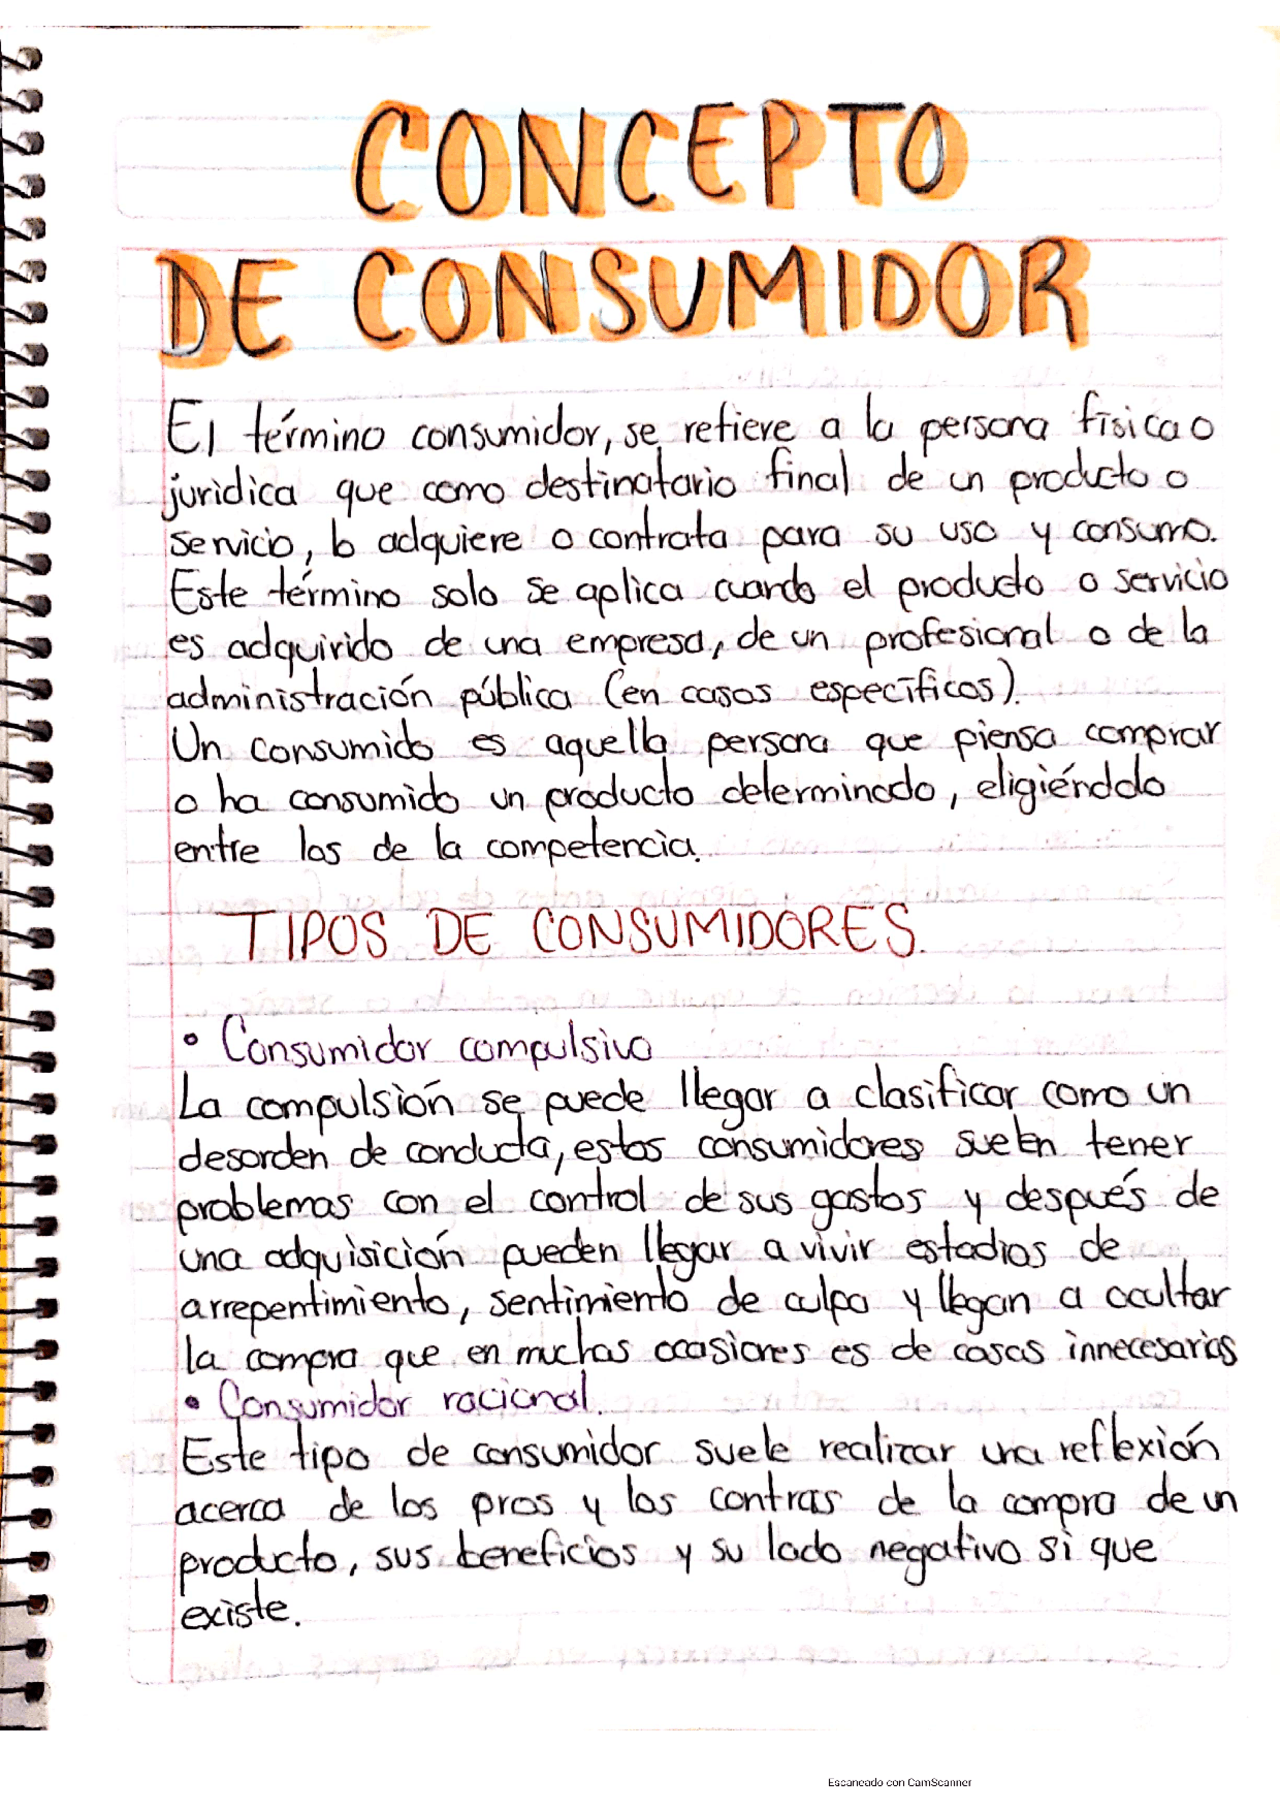 CONCEPTO
DE CONSUMIDOR
El término consumidor, se refiere a la persona física o
jurídica que como destinatario final de un producto o
servicio, lo adquiere o contrata para su uso y consumo.
Este término solo se aplica cuando el producto o servicio
es adquirido de una empresa, de un profesional o de la
administración pública (en casos específicos).
Un consumido es aquella persona que piensa comprar
o ha consumido un producto determinado, eligiéndolo
entre los de la competencia.
TIPOS DE CONSUMIDORES.
• Consumidor compulsivo
La compulsión se puede llegar a clasificar como un
desorden de conducta, estos consumidores suelen tener
problemas con el control de sus gastos y después de
una adquisición pueden llegar a vivir estadios de
arrepentimiento, sentimiento de culpa y llegan a ocultar
la compra que en muchas ocasiones es de cosas innecesarias
• Consumidor racional.
Este tipo de consumidor suele realizar una reflexión
acerca de los pros y los contras de la compra de un
producto, sus beneficios y su lado negativo si que
existe.
Escaneado con CamScanner